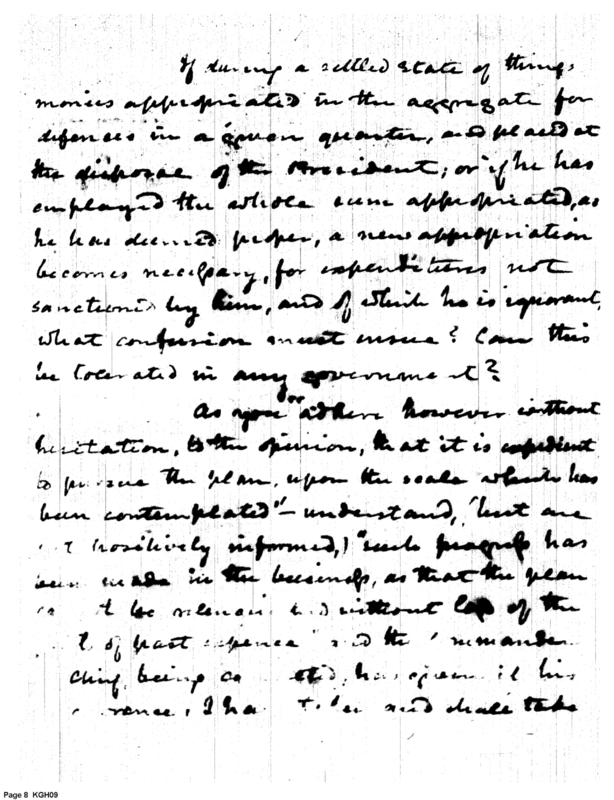 If during a settled state of things
monies appropriated in the aggregate for
defences in a given quarter, and placed at
the disposal of the President; or if he has
employed the whole sum appropriated, as
he has deemed proper, a new appropriation
becomes necessary, for expenditures not
sanctioned by him, and of which he is ignorant,
what confusion must ensue? Can this
be tolerated in any government?
As you adhere however without
hesitation, to the opinion, that it is expedient
to pursue the plan, upon the scale which has
been contemplated" – understand, (but are
positively informed,) "such progress has
been made in the business, as that the plan
be without loss of the
of past expence and the
being has given it his
I ha and shall take
Page 8 KGH09